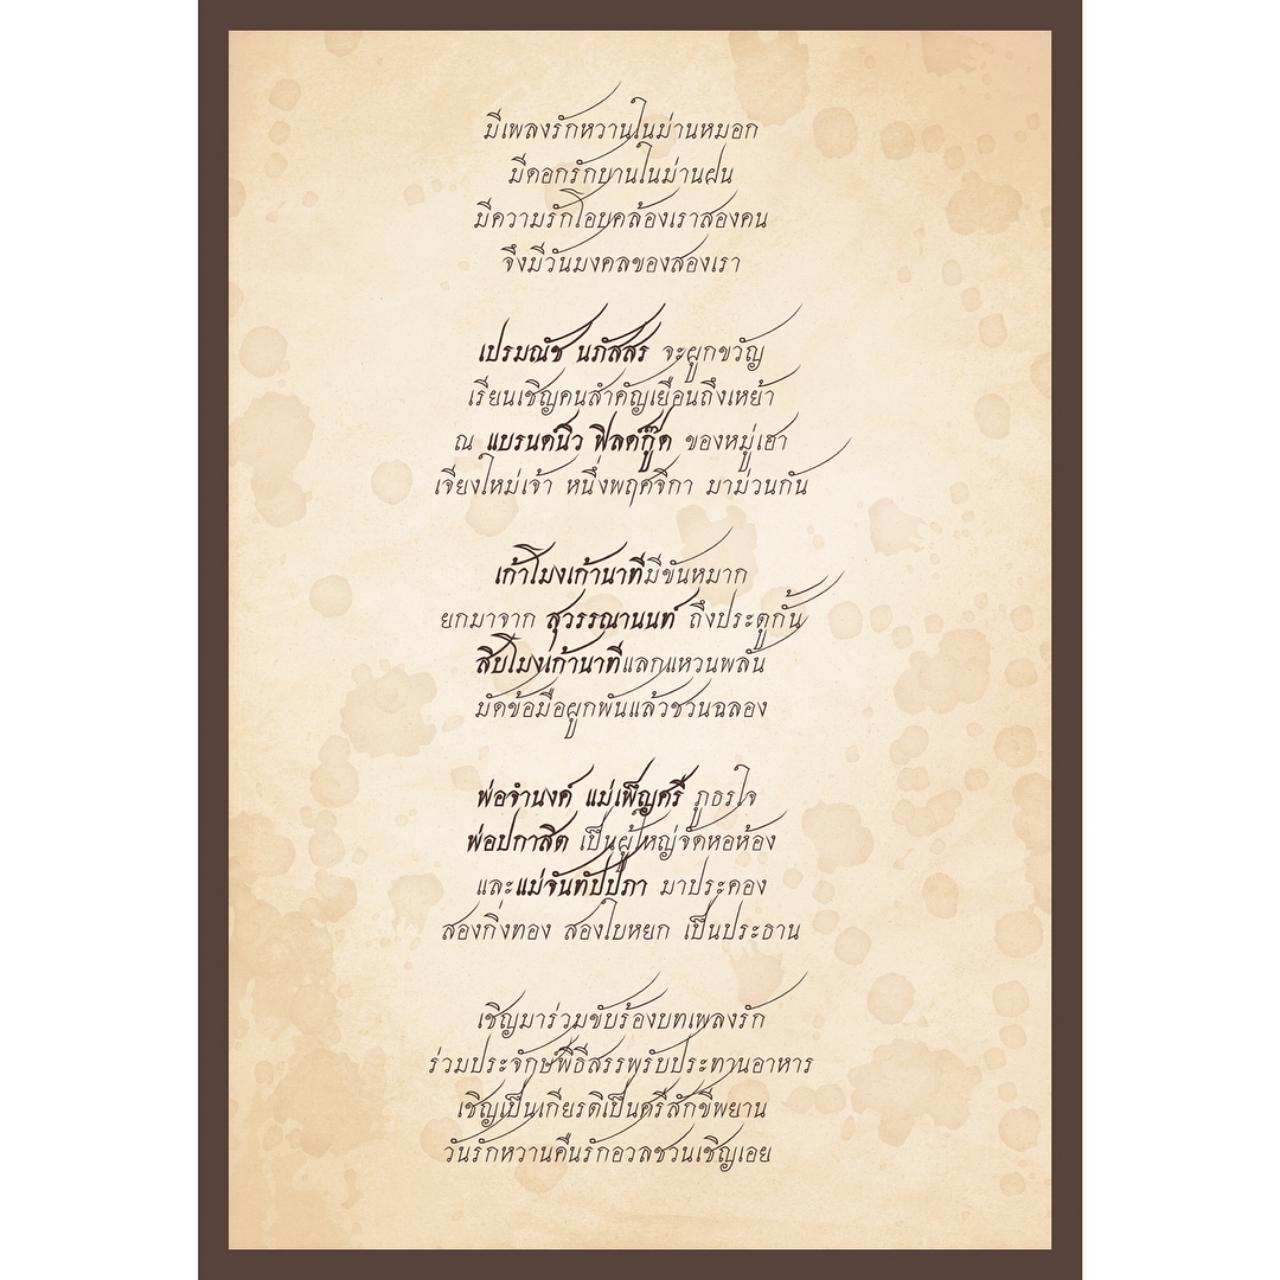 มีเพลงรักหวานในม่านหมอก
มีดอกรักบานในม่านฝน
มีความรักโอบคล้องเราสองคน
จึงมีวันมงคลของสองเรา
เปรมณัช นภัสสร จะผูกขวัญ
เรียนเชิญคนสำคัญเยือนถึงเหย้า
ณ แบรนด์นิว ฟิลด์กู๊ด ของหมู่เฮา
เจียงใหม่เจ้า หนึ่งพฤศจิกา มาม่วนกัน
เก้าโมงเก้านาทีมีขันหมาก
ยกมาจาก สุวรรณานนท์ ถึงประตูกั้น
สิบโมงเก้านาทีแลกแหวนพลัน
มัดข้อมือผูกพันแล้วชวนฉลอง
พ่อจำนงค์ แม่เพ็ญศรี ภูธรใจ
พ่อปกาสิต เป็นผู้ใหญ่จัดหอห้อง
และแม่จันทัปปภา มาประคอง
สองกิ่งทอง สองใบหยก เป็นประธาน
เชิญมาร่วมขับร้องบทเพลงรัก
ร่วมประจักษ์พิธีสรรพรับประทานอาหาร
เชิญเป็นเกียรติเป็นศรีสักขีพยาน
วันรักหวานคืนรักอวลชวนเชิญเอย